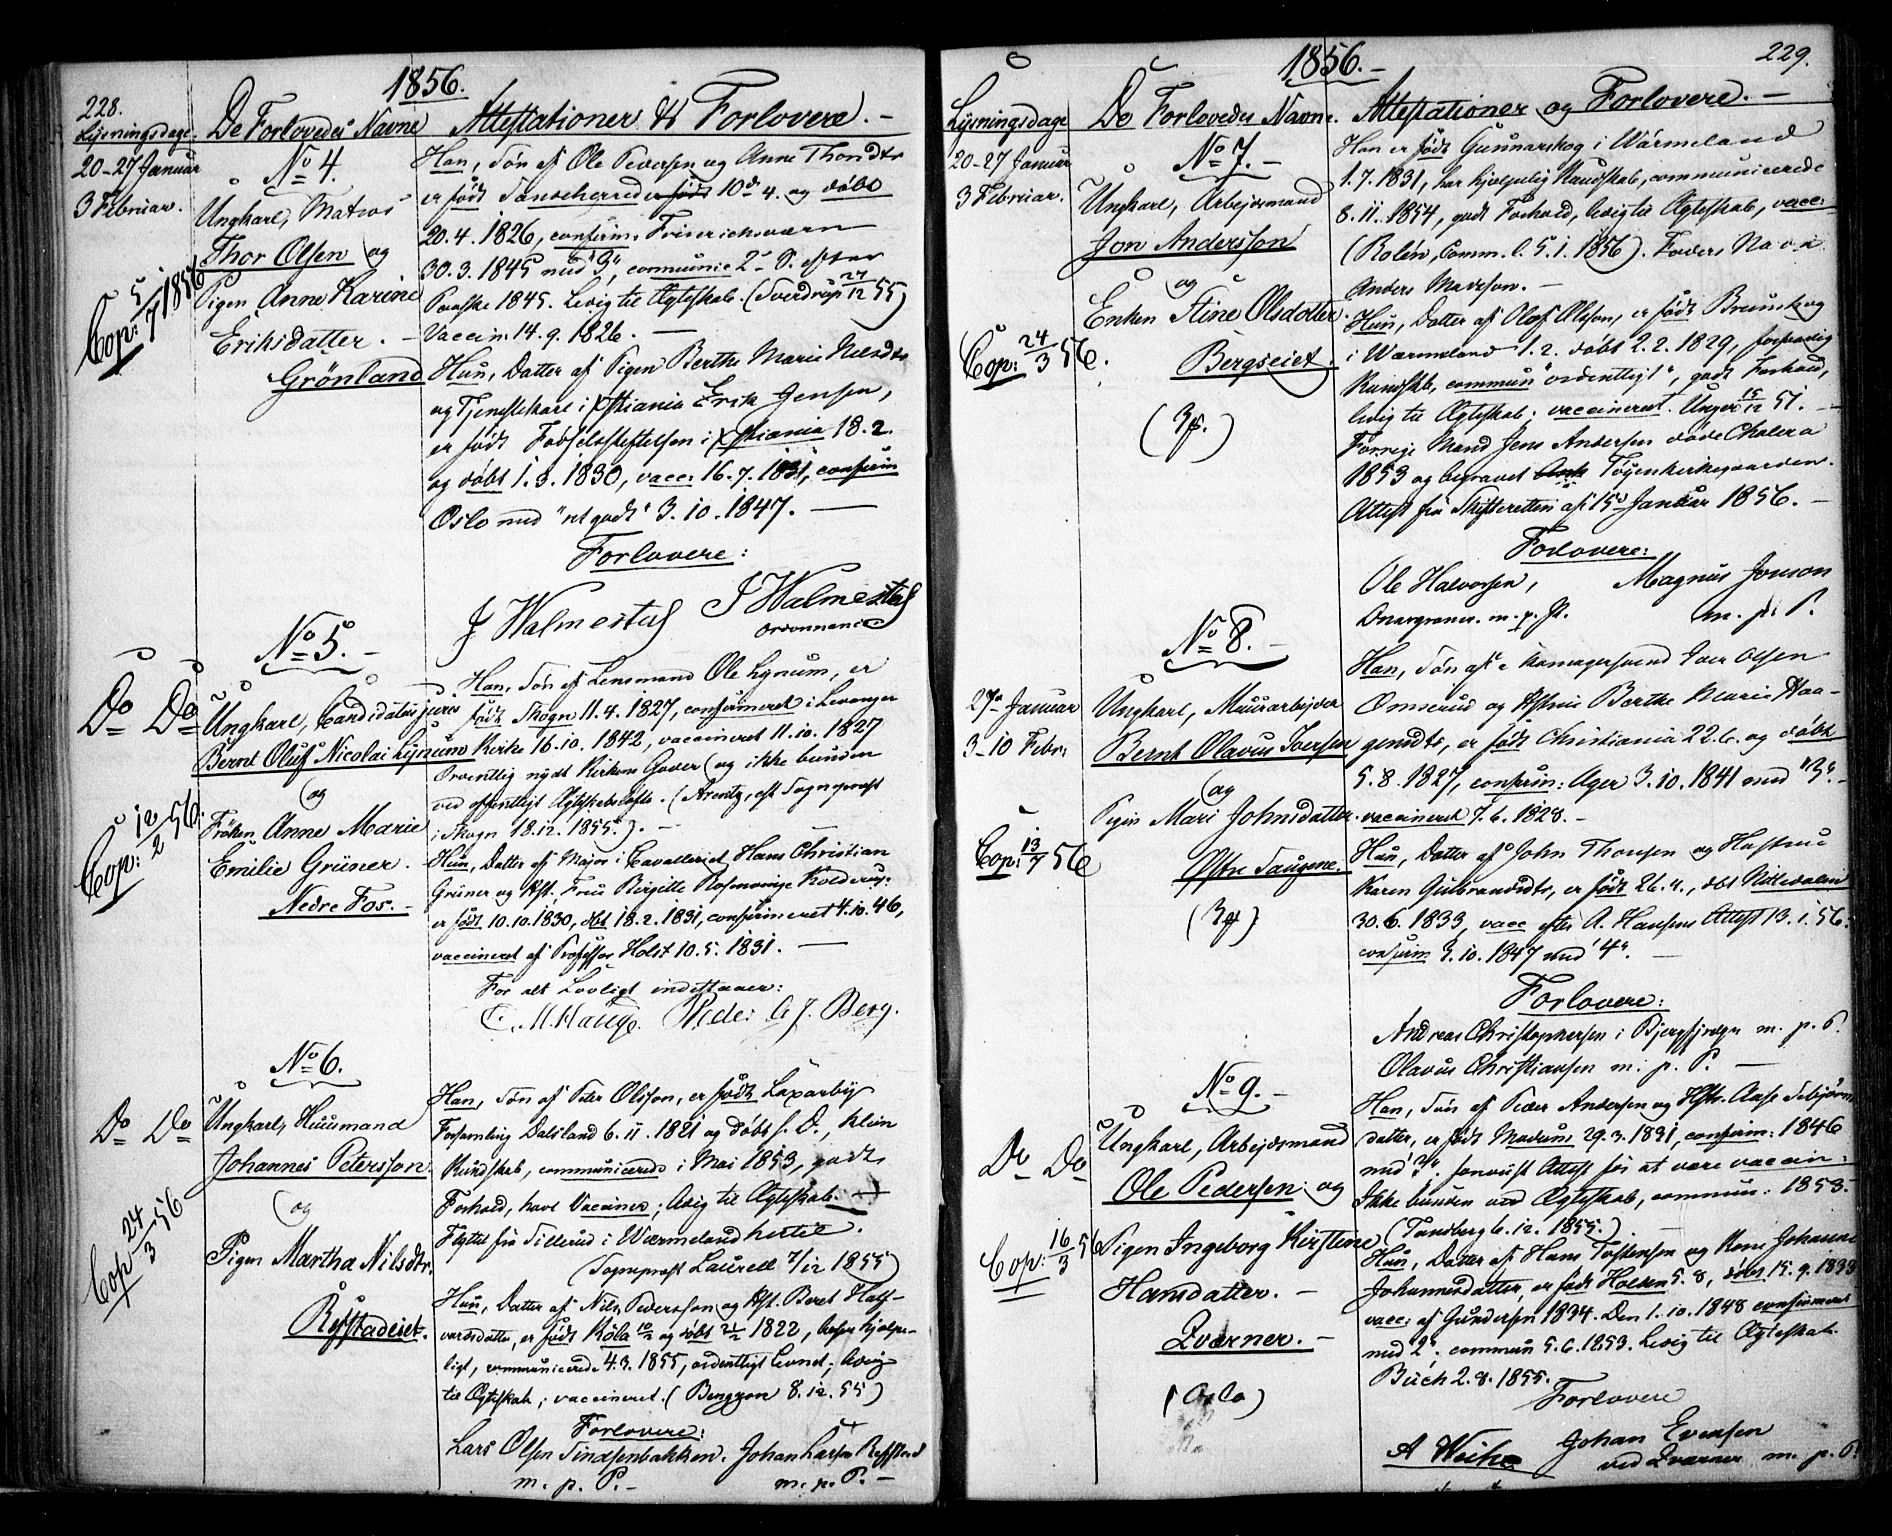 228.
1856.
Lysningsdage.
De Forlovedes Navne
Attestationer & Forlovere. –
20-27 Januar
3 Februar.
No 4.
Ungkarl, Matros
Thor Olsen og
Pigen Anne Karine
Eriksdatter. –
Grönland
Cop: 5/7 1856
Han, Søn af Ole Pedersen og Anne
er født 10de 4. og døbt
20.4.1826, confirm. Friderichsværn
30.3.1845 med "3", communic 2. S. efter
Paaske 1845. Ledig til Ægteskab. (Sverdrup 27/12 55)
Vaccin: 14.9.1826. —
Hun, Datter af Pigen Berthe Marie Nilsdtr
og Tjenestekarl i Xstiania Erik Jensen,
er født Fødselsstiftelsen i Xstiania 18.2.
og døbt 1.3.1830, vacc: 16.7.1831, confirm
Oslo med "ret godt" 3.10.1847. —
Forlovere:
J Walmestad J Walmestad
No 5. –
Do Do
Ungkarl, Candidatus juris
Bernt Oluf Nicolai Lynum
og
Frøken Anne Marie
Emilie Grüner.
Nedre Fos. –
Cop: 12/2 56.
Han, Søn af Lensmand Ole Lynum, er
født Skogn 11.4.1827, confirmeret i Levanger
Kirke 16.10.1842, vaccineret 11.10.1827
Ordentlig nydt Kirkens Goder og ikke bunden
ved offentligt Ægteskabsløfte. (Arentz, Sognepræst
i Skogn 18.12.1855.). –
Hun, Datter af Major i Cavalleriet Hans Christian
Grüner og Hst. Frue Birgitte Rosenvinge Kolderup,
er født 10.10.1830, dbt 18.2.1831, confirmeret 4.10.46,
vaccineret af Professor Holst 10.5.1831. —
For alt Lovligt indestaaer:
Hauge. C. J. Berg.
No 6.
Do Do
Ungkarl, Huusmand
Johannes Petersson
og
Pigen Martha Nilsdtr.
Rystadeiet.
Cop 24/3 56
Han, Søn af Peter Olsson, er født Laxarby
Forsamling Dalsland 6.11.1821 og døbt s. D., klein
Kundskab, communicerede i Mai 1853, godt
Forhold, havt Vaccinen; ledig til Ægteskab. —
Flyttet fra Sillerud i Wærmeland hertil.
(Sognepræst Laurell 7/12 1855)
Hun, Datter af Nils Pedersson og Hst. Beret Half-
varsdatter, er født Köla 10/2 og døbt 21/2 1822, læser hjelpe-
ligt, communicerede 4.3.1855, ordentligt Levnet; ledig
til Ægteskab; vaccineret. (Bengzon 8.12.55)
Forlovere:
Lars Olsen Tindsenbakken. Johan Larsen
m. p. P. – m. p. P. –
229.
1856. –
Lysningsdage
De Forlovedes Navne.
Attestationer og Forlovere. –
20-27 Januar
3 Februar.
No 7. –
Ungkarl, Arbejdsmand
Jon Andersson
og
Enken Stine Olsdatter.
Bergseiet.
Cop: 24/3 56.
Han er født Gunnarskog i Wärmeland
1.7.1831, har hjelpelig Kundskab, communicerede
8.11.1854, godt Forhold, ledig til Ægteskab, vacc:
(Rolén, Comm. l. 5.1.1856). Faders Navn
Anders –
Hun, Datter af Olof Olsson, er født Brunskog
i Wærmeland 1.2. døbt 2.2.1829, forsvarlig
Kundskb, commun "ordentligt", godt Forhold,
ledig til Ægteskab; vaccineret. Unger 15/12 51. –
Forrige Mand Jens Andersen døde Cholera
1853 og begravet Töyenkirkegaarden.
Attest fra Skifteretten af 15d Januar 1856. –
Forlovere:
Ole Halvorsen, Magnus Jonson
m. p. P. m. p. P.
No 8. –
27de Januar
3-10 Febr:
Ungkarl, Muurarbejder
Bernt Olavus Iversen
og
Pigen Mari Johnsdatter.
Østre Taugene.
Cop: 13/7 56
Han, Søn af Iver Olsen
Omsrud og Hstrue Berthe Marie Aa-
gensdtr, er født Christiania 22.6. og døbt
5.8.1827, confirm: Ager 3.10.1841 med "3". –
vaccineret 7.6.1828. –
Hun, Datter af John Thorsen og Hustrue
Karen Gulbrandsdtr, er født 26.4., dbt Nittedalen
30.6.1833, vacc efter A. Hansens Attest 13.1.56.
confirm 3.10.1847 med "4". —
Forlovere:
Andreas Christophersen i m. p. P.
Olavus Christiansen m. p. P. —
No 9. –
Do Do
Ungkarl, Arbejdsmand
Ole Pedersen og
Pigen Ingeborg Kirstine
Hansdatter. –
Qværner. –
(Oslo)
Cop: 16/3 56
Han, Søn af Peder Andersen og Hstr. Aase Torbjørns
datter, er født Modums 29.3.1831, confirm: 1846
med "3". forevist Attest for at være vaccin:
Ikke bunden ved Ægteskab, commun: 1853.
(Tandberg 6.12.1855.). –
Hun, Datter af Hans Torstensen og Kone Johanne
Johannesdatter, er født Holden 5.8, døbt 15.9.1833
vacc: af Gundersen 1834. Den 1.10.1848 confirmeret
med 2". commun 5.6.1853. Ledig til Ægteskab.
Buch 2.8.1855.
Forlovere
A Johan Evensen
ved Qværner m. p. P.